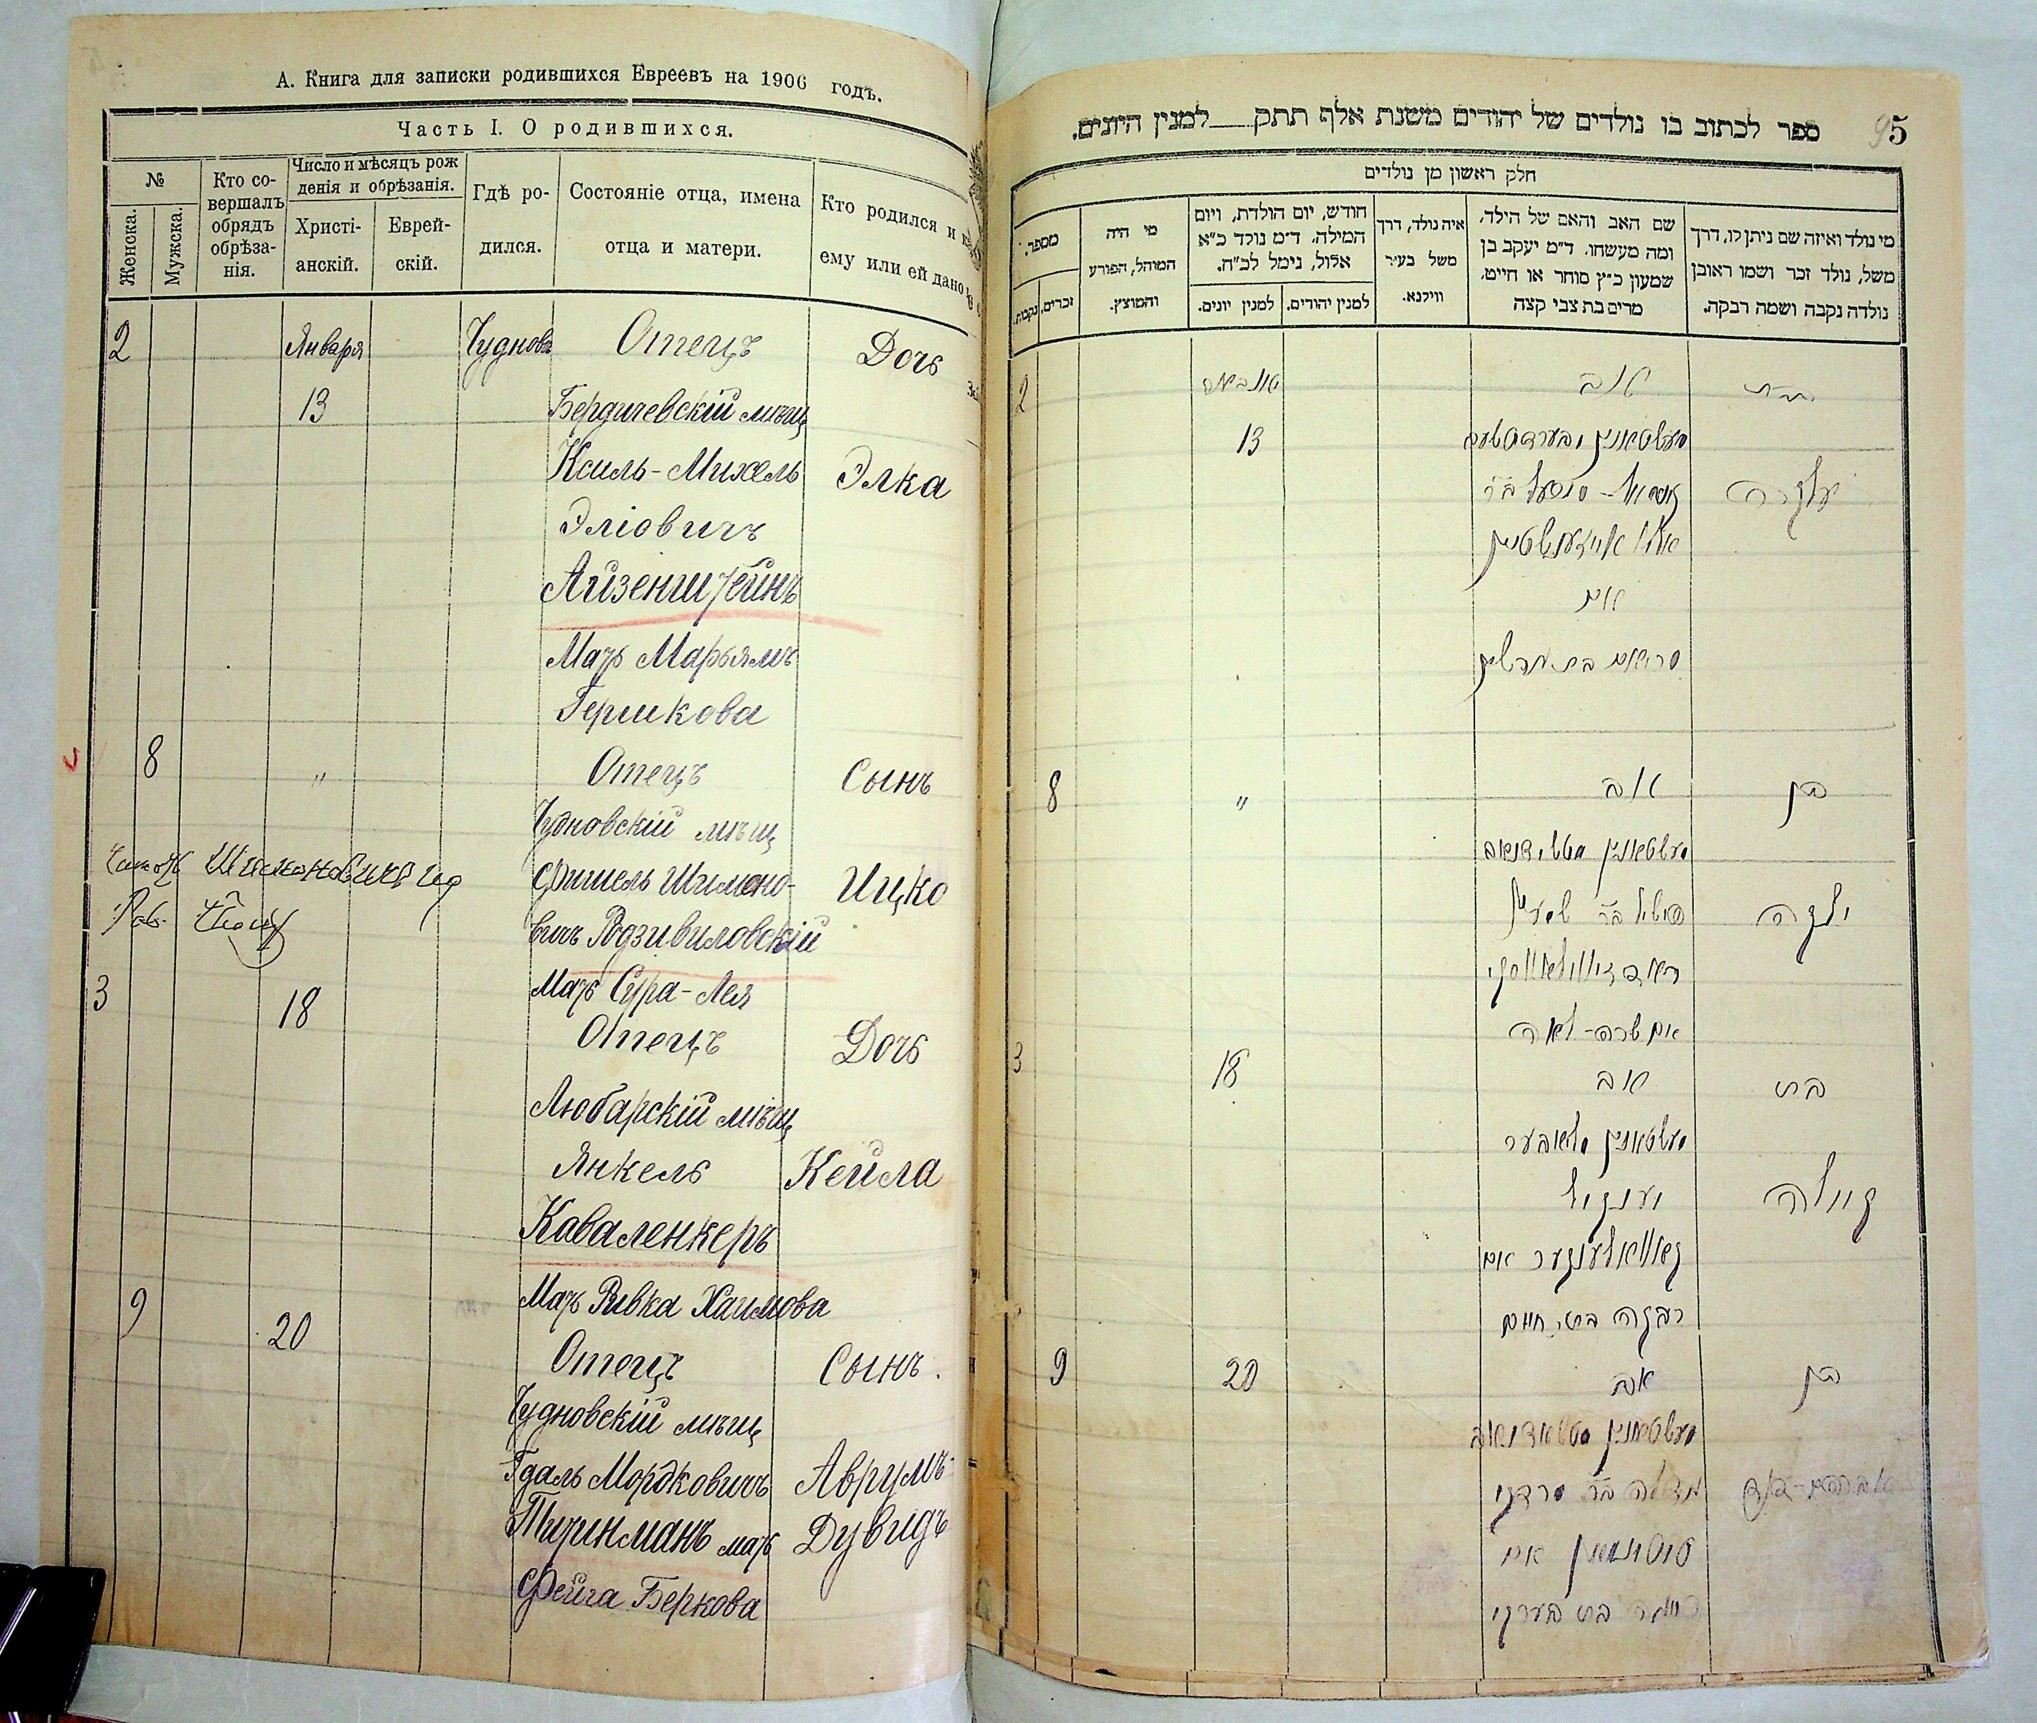 А. Книга для записки родившихся Евреевъ на 1906 годъ.
Часть I. О родившихся.
№
Женска.
Мужска.
Кто со-
вершалъ
обрядъ
обрѣза-
нія.
Число и мѣсяцъ рож
денія и обрѣзанія.
Христі-
анскій.
Еврей-
скій.
Гдѣ ро-
дился.
Состояніе отца, имена
отца и матери.
Кто родился и к
ему или ей дано
2 Января Чудновъ Отецъ Дочь
13 Бердичевскій мѣщ
Ксиль-Михель Элка
Эліовичъ
Айзенштейнъ
Мать Марьямъ
Гершкова
8 " Отецъ Сынъ
Чудновскій мѣщ
Фишель Шимоно- Ицко
вичъ Радзивиловскій
Мать Сура-Лея
3 18 Отецъ Дочь
Любарскій мѣщ
Янкель Кейла
Каваленкеръ
Мать Ривка Хаимова
9 20 Отецъ Сынъ
Чудновскій мѣщ
Гдаль Мордковичъ Аврумъ-
мать Дувидъ
Фейга Беркова
95
ספר לכתוב בו נולדים של יהודים משנת אלף תתק למנין היונים.
חלק ראשון מן נולדים
מי נולד ואיזה שם ניתן לו, דרך
משל, נולד זכר ושמו ראובן
נולדה נקבה ושמה רבקה.
שם האב והאם של הילד,
ומה מעשהו. ד״מ יעקב בן
שמעון כ״ץ סוחר או חייט,
מרים בת צבי קצה
איה נולד, דרך
משל בעיר
ווילנא.
חודש, יום הולדת, ויום
המילה. ד״מ נולד כ״א
אלול, נימל לכ״ח.
למנין יהודים.
למנין יונים.
מי היה
המוהל, הפורע
והמוצץ.
מספר.
זכרים.
נקבות.
2 יאנבאר אב בת
13
עלקה
אייזענשטיין
אם
מריאם בת הערשקו
8 " אב בן
פישיל בר שמעון
אם שרה-לאה
3 18 אב בת
יענקיל קיילה
קאוואלענקער אם
רבקה בת חיים
9 20 אב בן
גדליה בר מרדכי אברהם-דוד
אם
פייגה בת בערקו